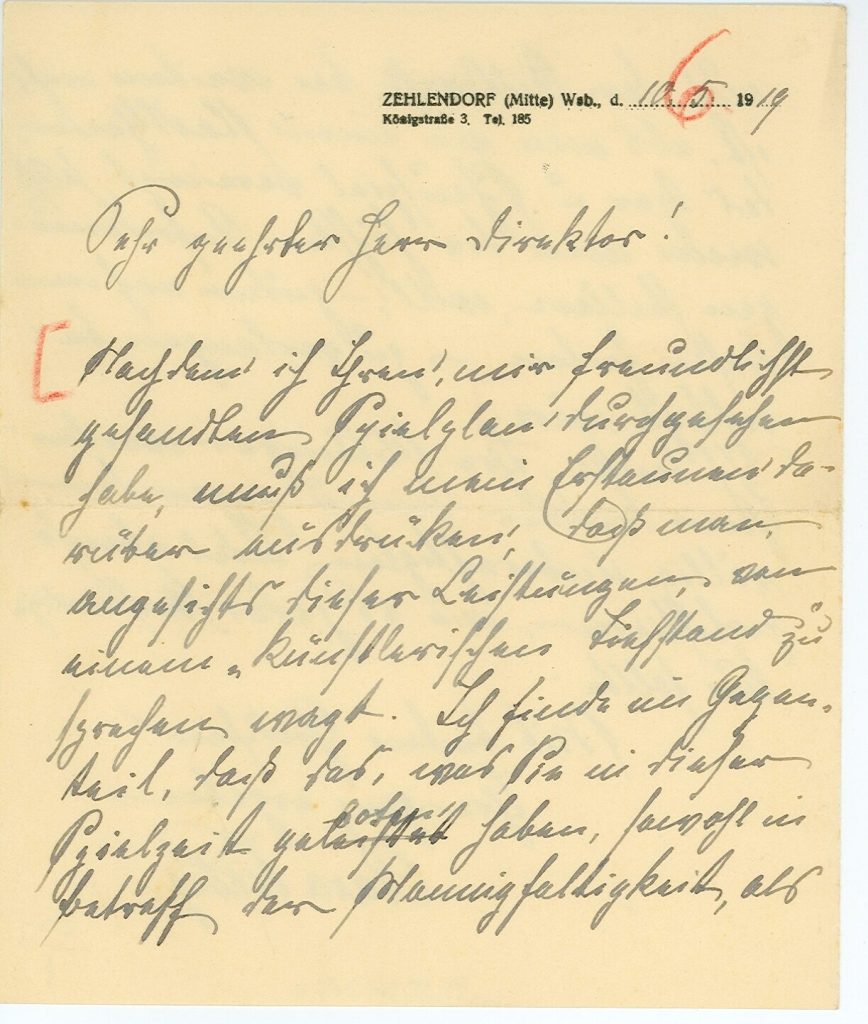 6
ZEHLENDORF (Mitte) Wsb., d. 10. 5. 1919
Königstraße 3. Tel. 185
Sehr geehrter Herr Direktor!
[ Nachdem ich Ihren, mir freundlichst
gesandten Spielplan durchgesehen
habe, muß ich mein Erstaunen da-
rüber ausdrücken, daß man,
angesichts dieser Leistungen, von
einem „künstlerischen Tiefstand" zu
sprechen wagt. Ich finde im Gegen-
teil, daß das, was Sie in dieser
boten
Spielzeit geleistet haben, sowohl in
betreff der Mannigfaltigkeit, als